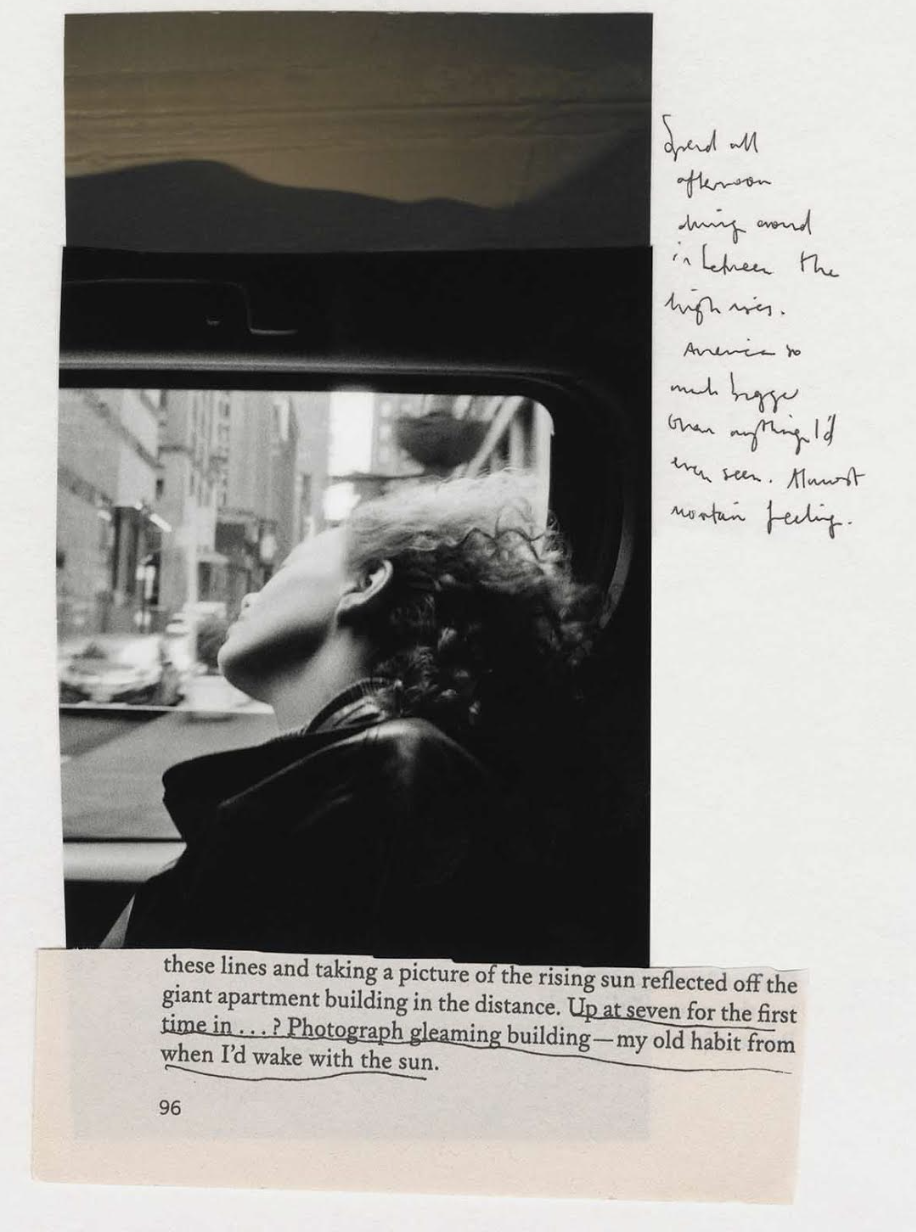 Spend all
afternoon
driving around
in between the
high rises.
America so
much bigger
than anything I'd
ever seen. Almost
mountain feeling.
these lines and taking a picture of the rising sun reflected off the
giant apartment building in the distance. Up at seven for the first
time in . . . ? Photograph gleaming building—my old habit from
when I'd wake with the sun.
96